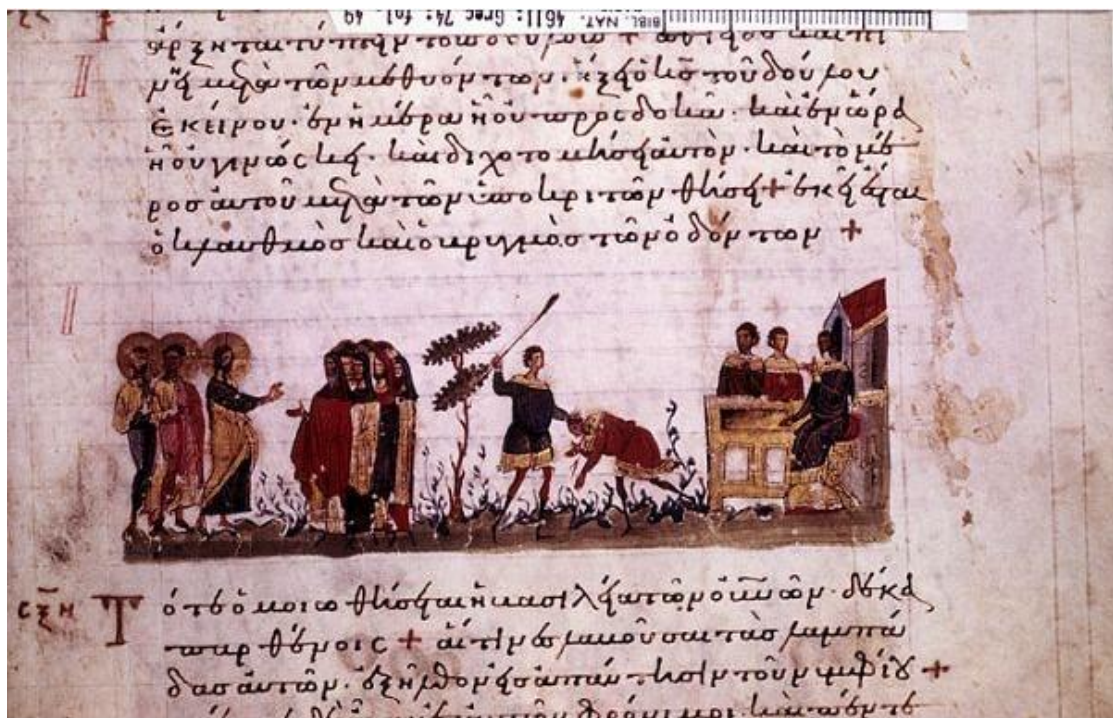 BIBL. NAT. 4611: Grec 74: fol. 49
ἄρξηται τύπτειν τοὺς καὶ πί
νει μετὰ τῶν μεθυόντων. ἥξει ὁ κ̅ς̅ τοῦ δούλου
ἐκείνου. ἐν ἡμέρα ἧ οὐ προσδοκᾶ. καὶ ἐν ὥρα
ἧ οὐ γινώσκει. καὶ διχοτομήσει αὐτὸν. καὶ τὸ μέ
ρος αὐτοῦ μετὰ τῶν ὑποκριτῶν θήσει + ἐκεῖ ἔσται
ὁ κλαυθμὸς καὶ ὁ βρυγμὸς τῶν ὀδόντων +
σξη Τότε ὁμοιωθήσεται ἡ βασιλεία τῶν οὐ̅ν̅ῶν. δέκα
παρθένοις + αἵτινες λαβοῦσαι τὰς λαμπά
δας αὐτῶν. ἐξῆλθον εἰς ἀπάντησιν τοῦ νυμφίου +
φρόνιμοι. καὶ